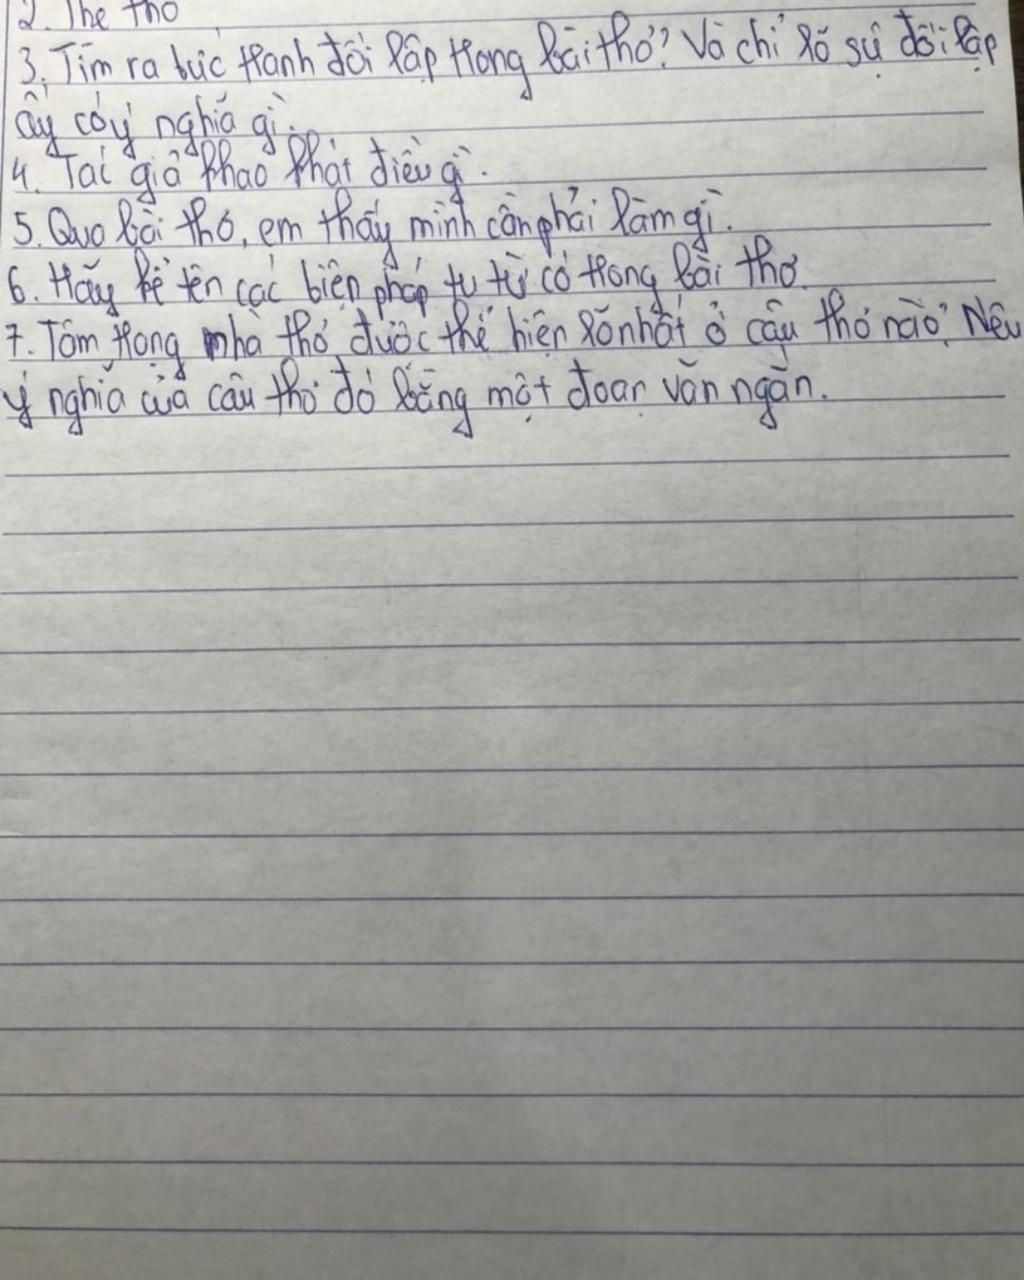 2. Thể thơ
3. Tìm ra bức tranh đối lập trong bài thơ? Và chỉ rõ sự đối lập
ấy có ý nghĩa gì.
4. Tác giả khao khát điều gì.
5. Qua bài thơ, em thấy mình cần phải làm gì.
6. Hãy kể tên các biện pháp tu từ có trong bài thơ.
7. Tâm trạng nhà thơ được thể hiện rõ nhất ở câu thơ nào? Nêu
ý nghĩa của câu thơ đó bằng một đoạn văn ngắn.